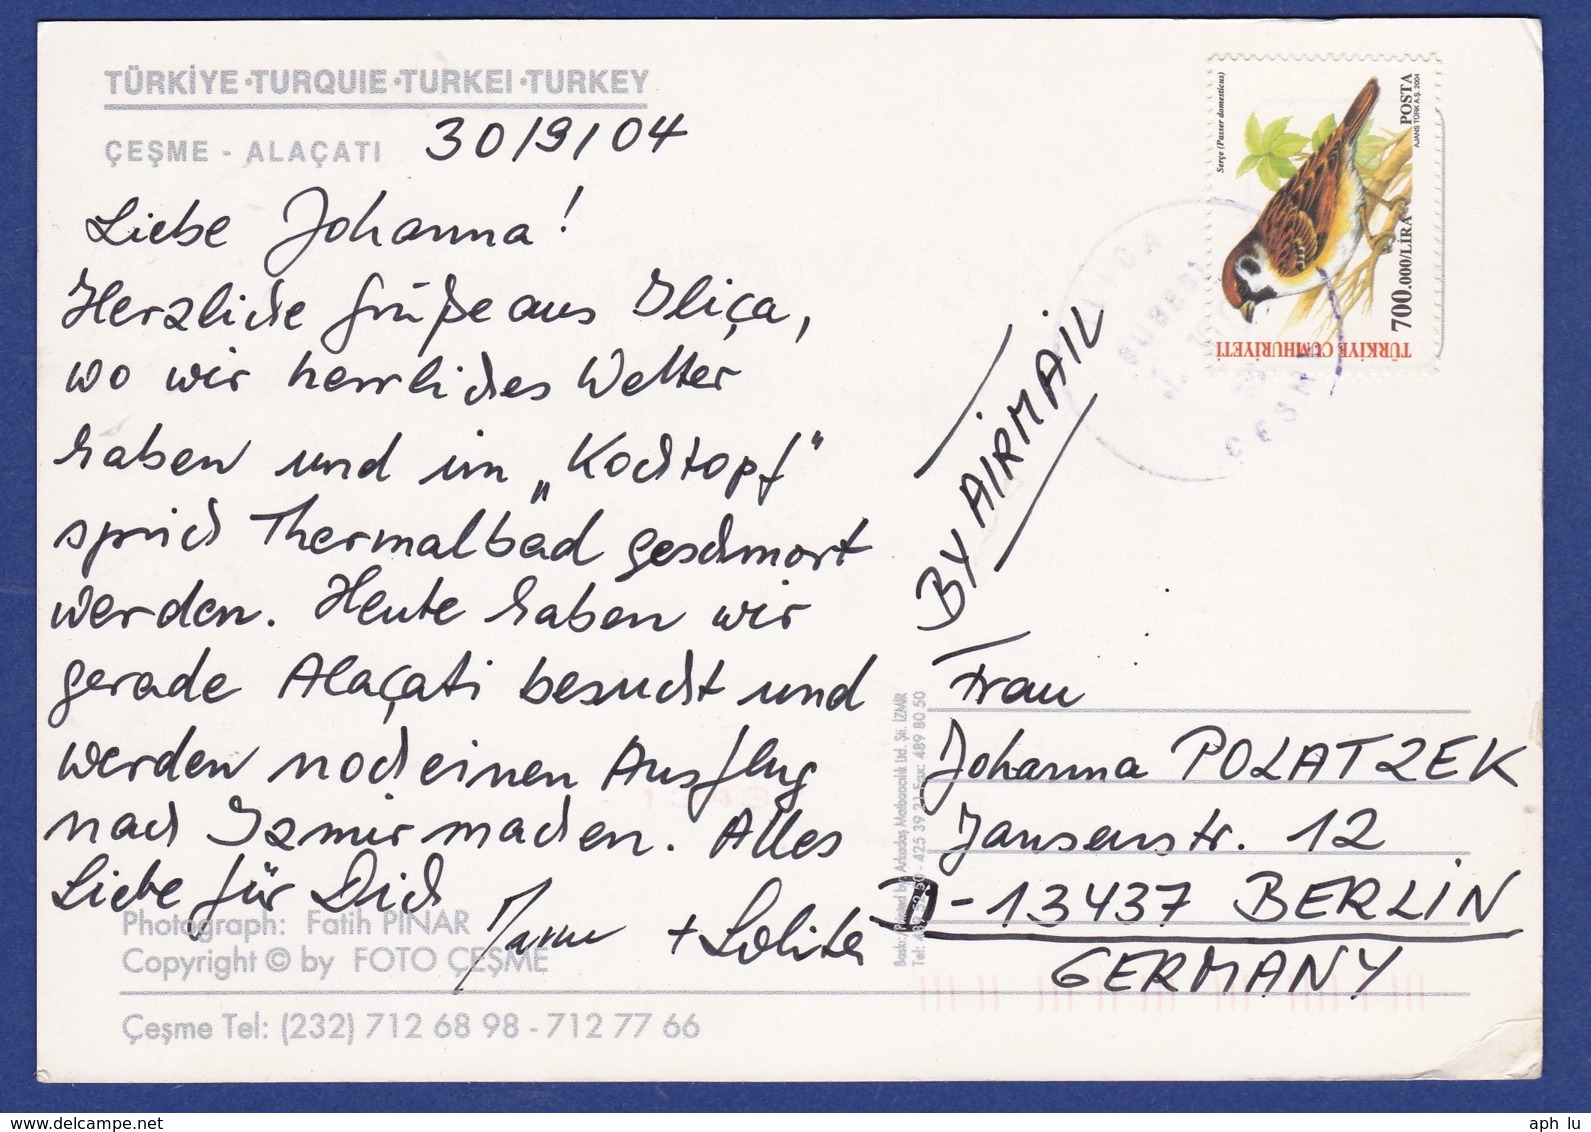 TÜRKİYE·TURQUIE·TURKEI·TURKEY
ÇEŞME - ALAÇATI
30/9/04
Liebe Johanna!
Herzliche Grüße aus Iliça,
wo wir herrliches Wetter
haben und im „Kochtopf"
sprich Thermalbad geschmort
werden. Heute haben wir
gerade Alaçati besucht und
werden noch einen Ausflug
nach Izmir machen. Alles
Liebe für Dich
+ Lolita
Photograph: Fatih PINAR
Copyright © by FOTO ÇEŞME
Çeşme Tel: (232) 712 68 98 - 712 77 66
Serçe (Passer domesticus)
TÜRKİYE CUMHURİYETİ
700.000/LİRA
POSTA
AJANS TÜRK A.Ş. 2004
ILICA
ÇEŞME
BY AIRMAIL
Frau
Johanna POLATZEK
Jansenstr. 12
D-13437 BERLIN
GERMANY
425 39 21 Fax: 489 80 50
aph lu